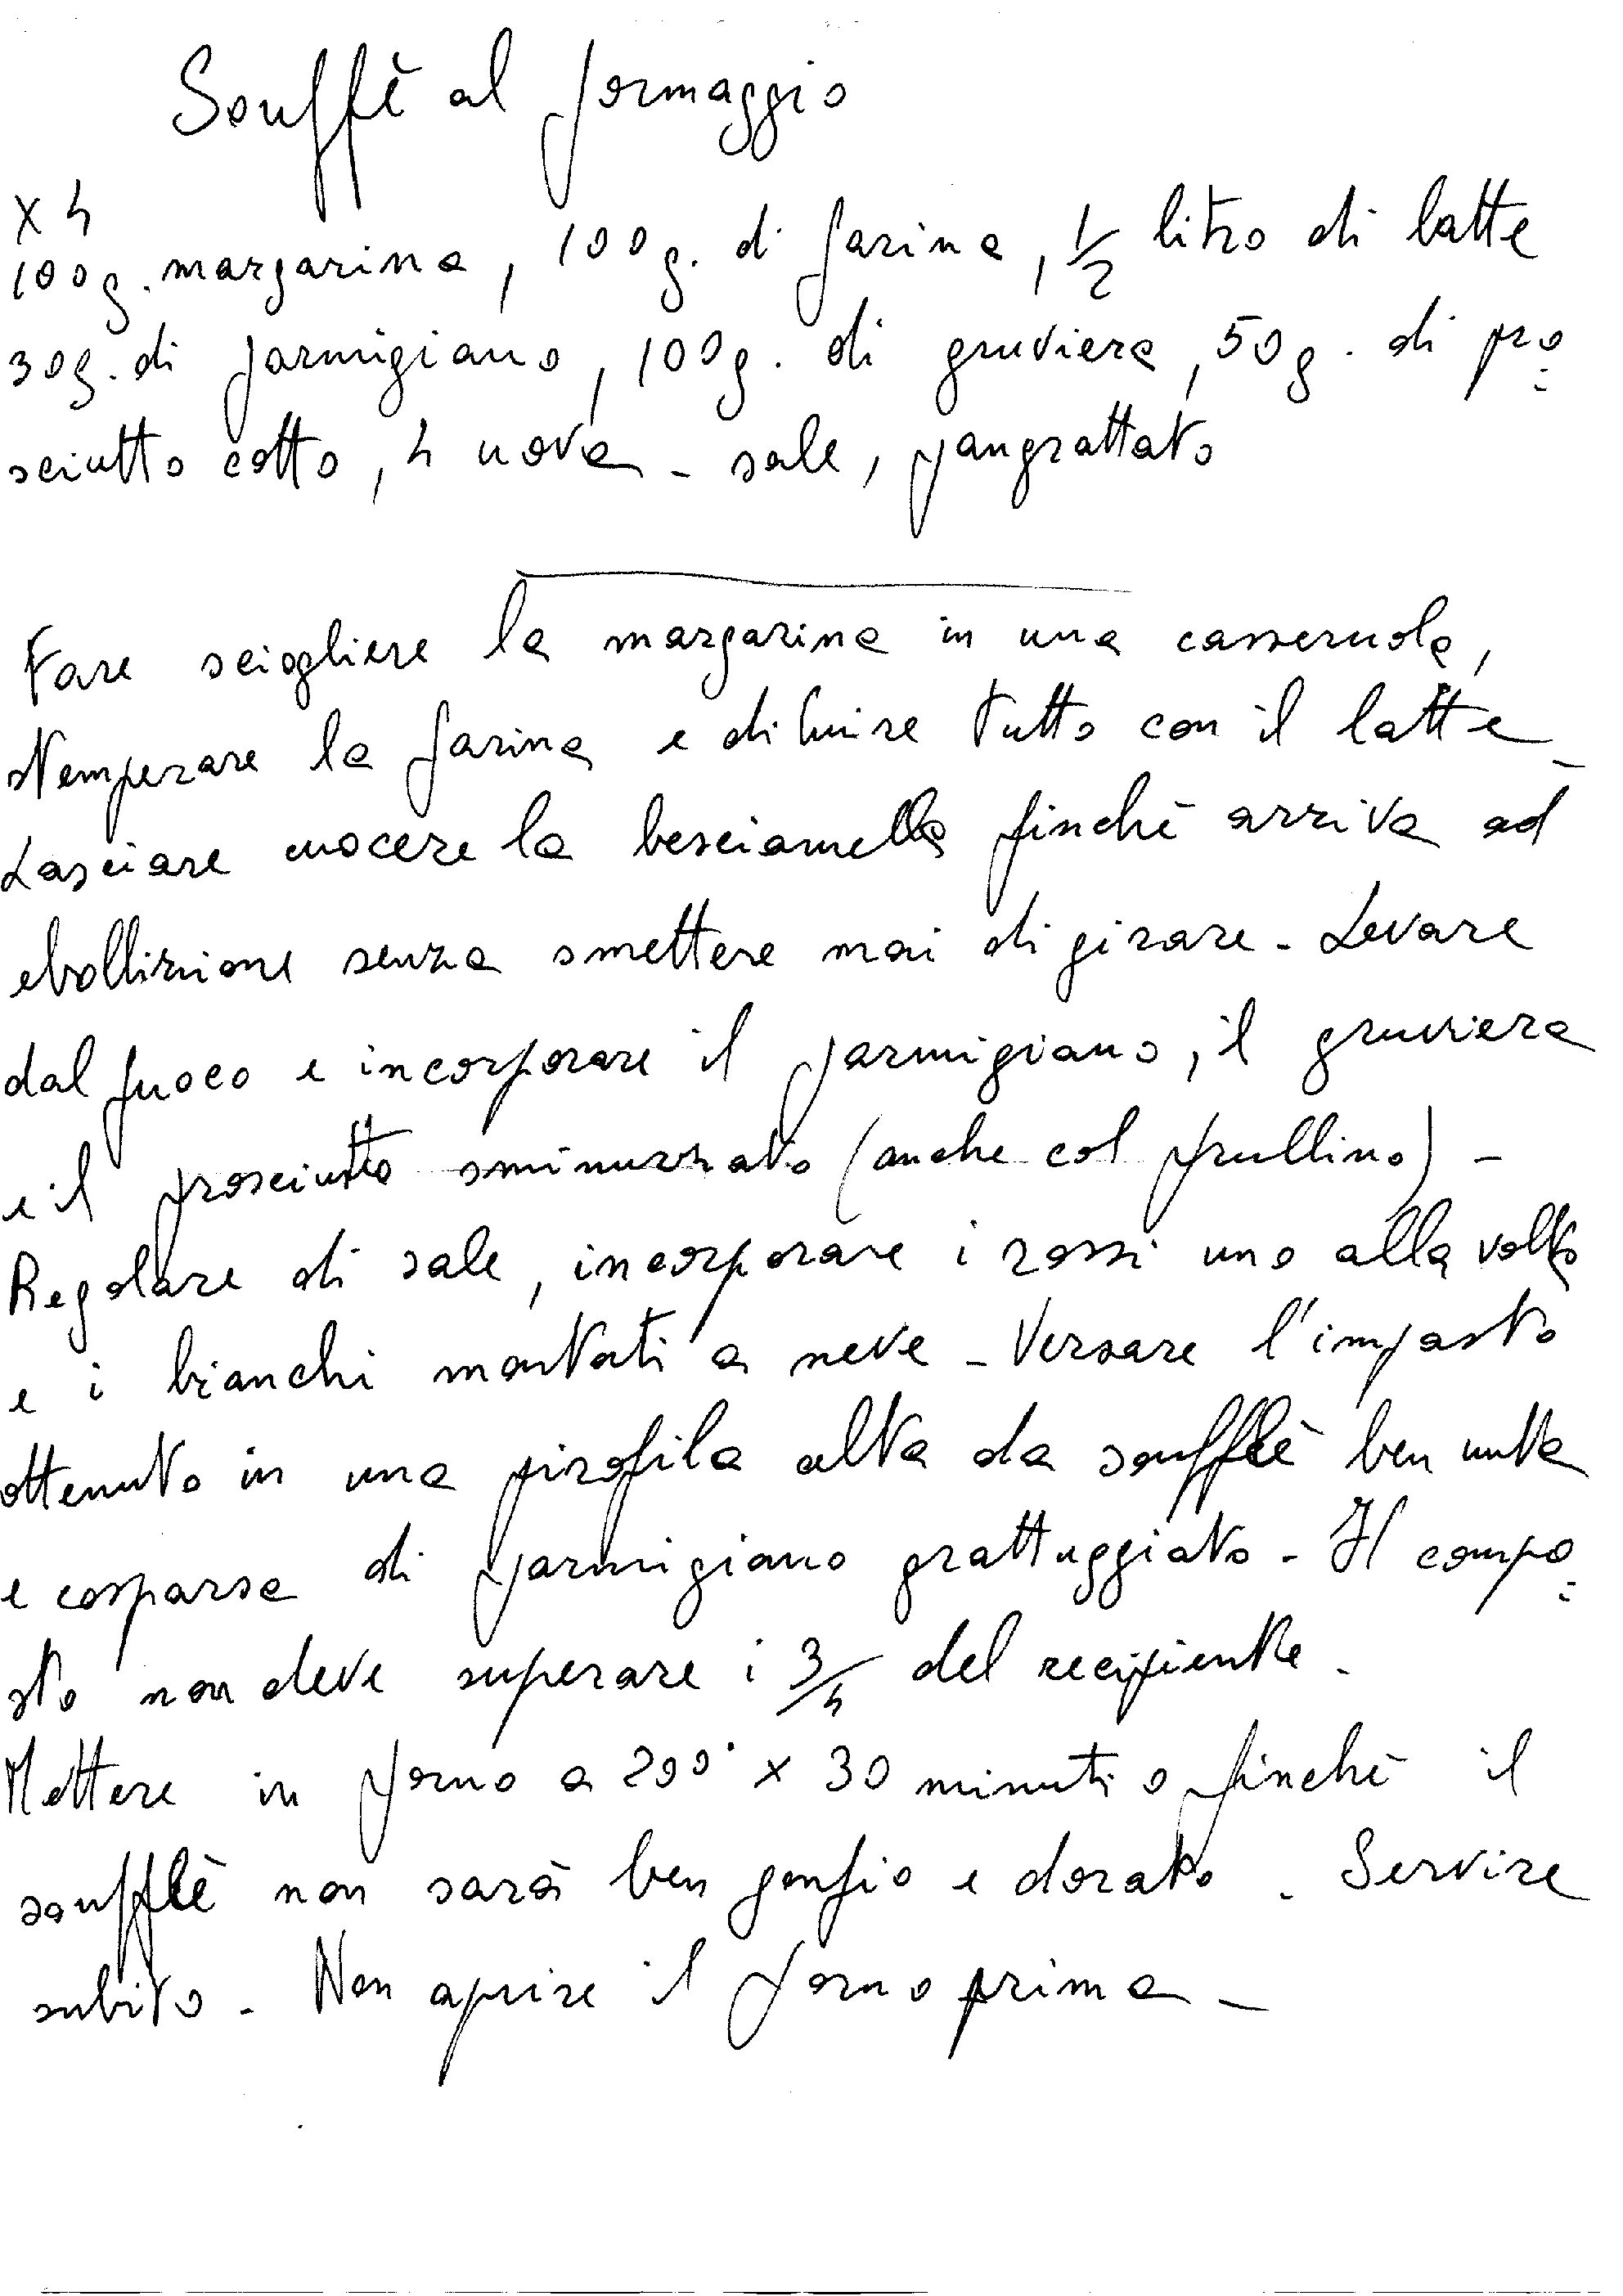 Soufflè al formaggio
x 4
100g. margarina, 100g. di farina, 1/2 litro di latte
30g. di parmigiano, 100g. di gruviera, 50g. di pro=
sciutto cotto, 4 uova - sale, pangrattato
Fare sciogliere la margarina in una casseruola,
stemperare la farina e diluire tutto con il latte -
Lasciare cuocere la besciamella finchè arriva ad
ebollizione senza smettere mai di girare - Levare
dal fuoco e incorporare il parmigiano, il gruviera
e il prosciutto sminuzzato (anche col frullino) -
Regolare di sale, incorporare i rossi uno alla volta
e i bianchi montati a neve - Versare l'impasto
ottenuto in una pirofila alta da soufflè ben unta
e cosparsa di parmigiano grattuggiato - Il compo=
sto non deve superare i 3/4 del recipiente.
Mettere in forno a 200° x 30 minuti o finchè il
soufflè non sarà ben gonfio e dorato. Servire
subito - Non aprire il forno prima -